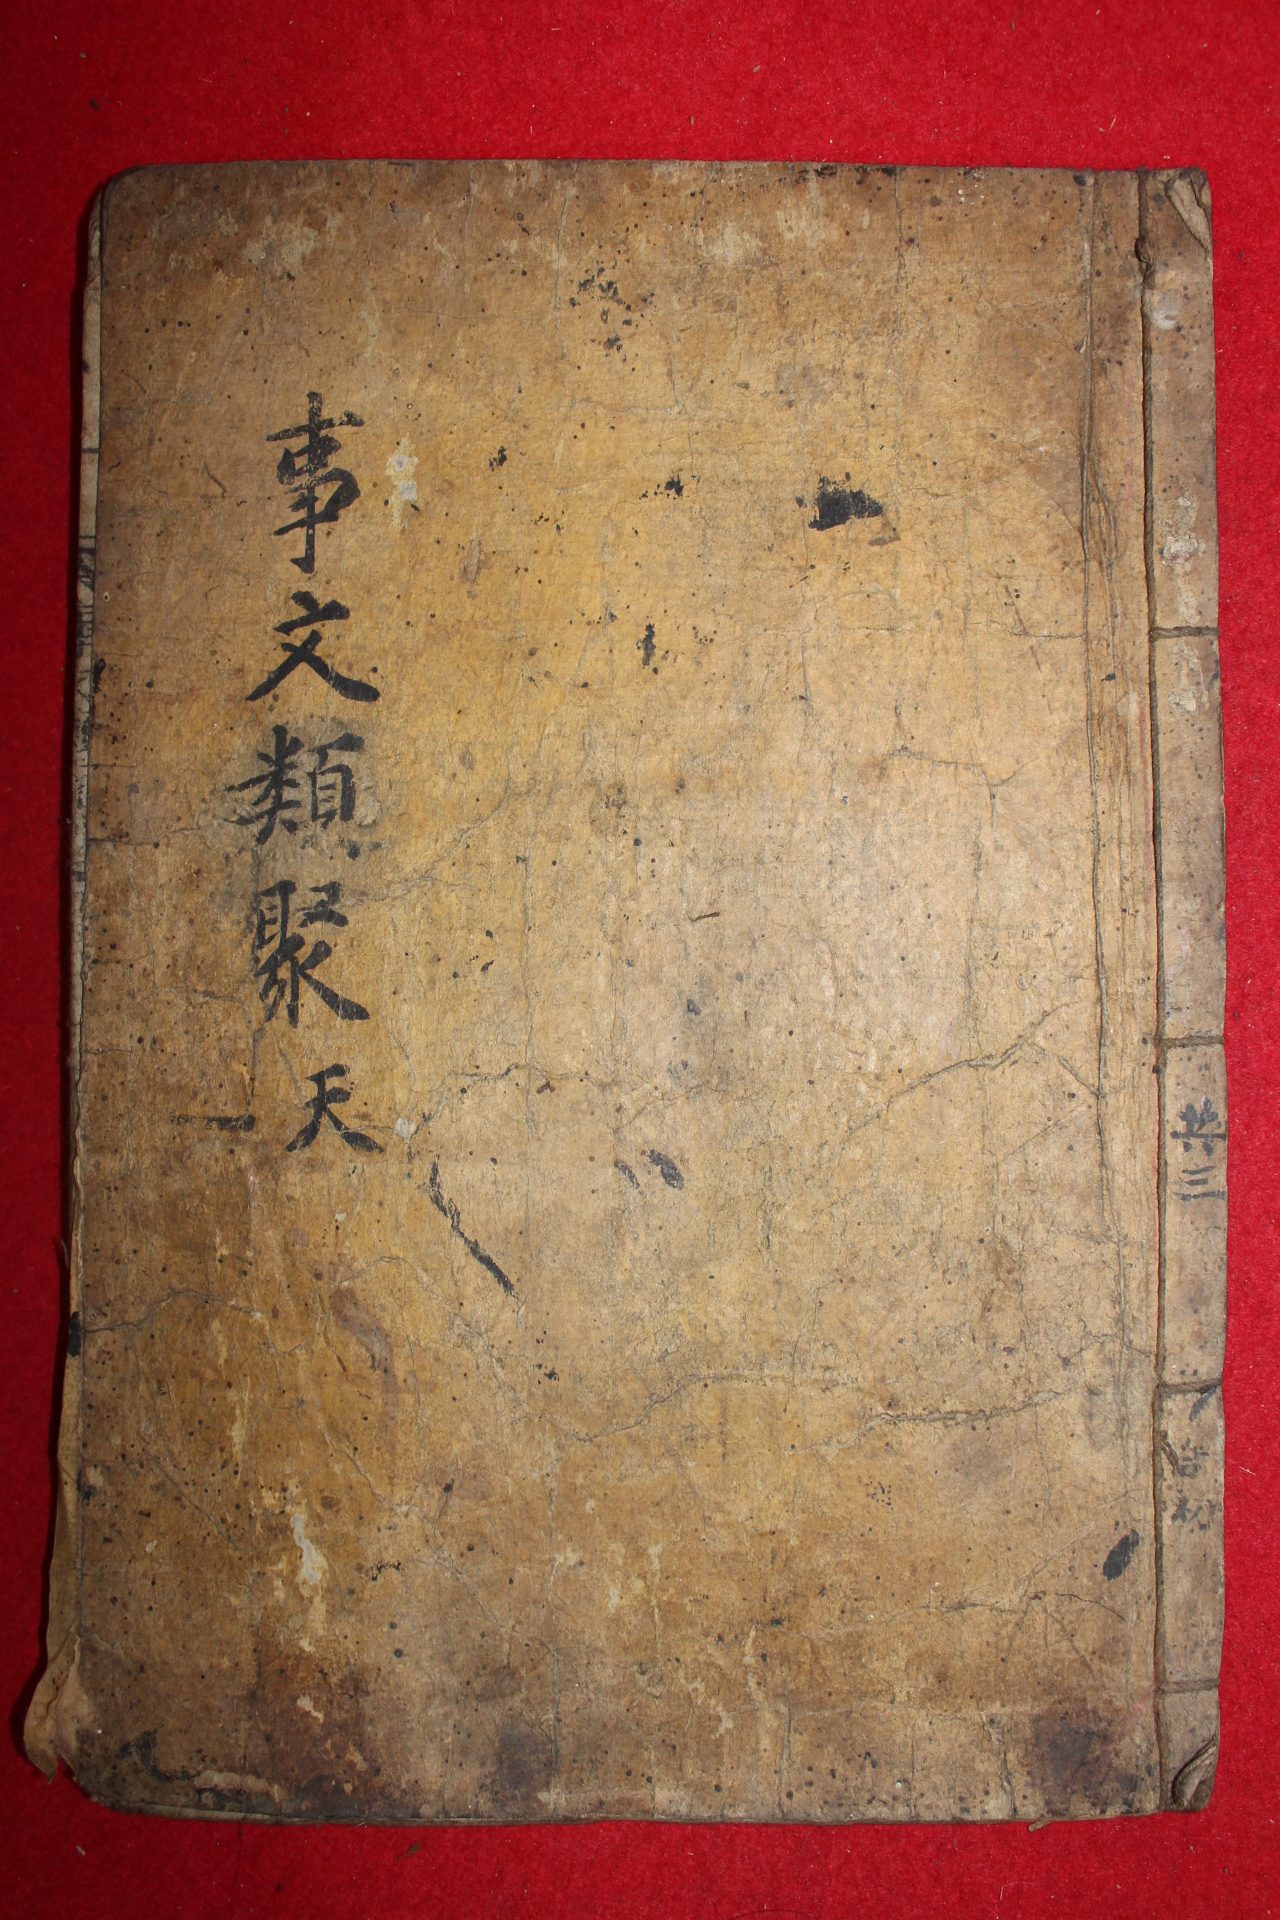 共三
事文類聚 天
一